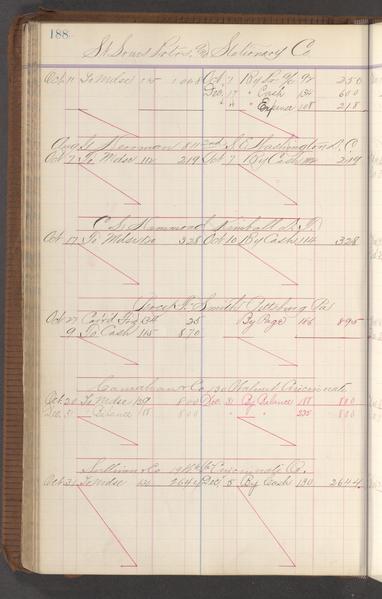 188
St. Louis Litho. & Stationary Co.
Oct 11 To Mdse 1068 Oct 7 By 250
Dec 17 " Cash 134 600
" " Expense 108 218
Aug Herrman 811 2nd St. Washington D. C.
Oct 7 To Mdse 112 219 Oct 7 By Cash 112 219
C. S. Hammond Kimball S. D.
Oct 17 To Mdse 120 328 Oct 10 By Cash 114 328
Smith Pittsburg Pa
Oct 27 Card 25 By Page 186 895
9 To Cash 115 870
Carnahan & Co 130 Walnut Cincinnati
Oct 20 To Mdse 129 800 Dec 31 By Balance 188 800
Dec 31 " Balance 188 800 " " 235 800
Sullivan & Co 19 Cincinnati O.
Oct 31 To Mdse 2644 Dec 5 By Cash 130 2644